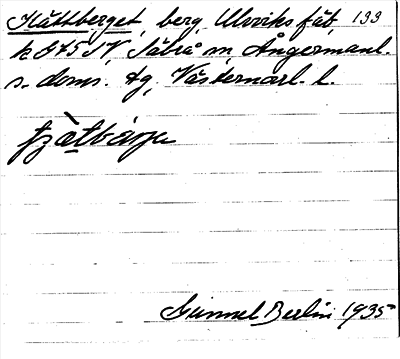 Kättberget, berg, Ulvviks fåb, 133
k 875 IV, Säbrå sn, Ångermanl.
s. doms. tg, Västernorrl. l.
Gunnel Berlin 1935